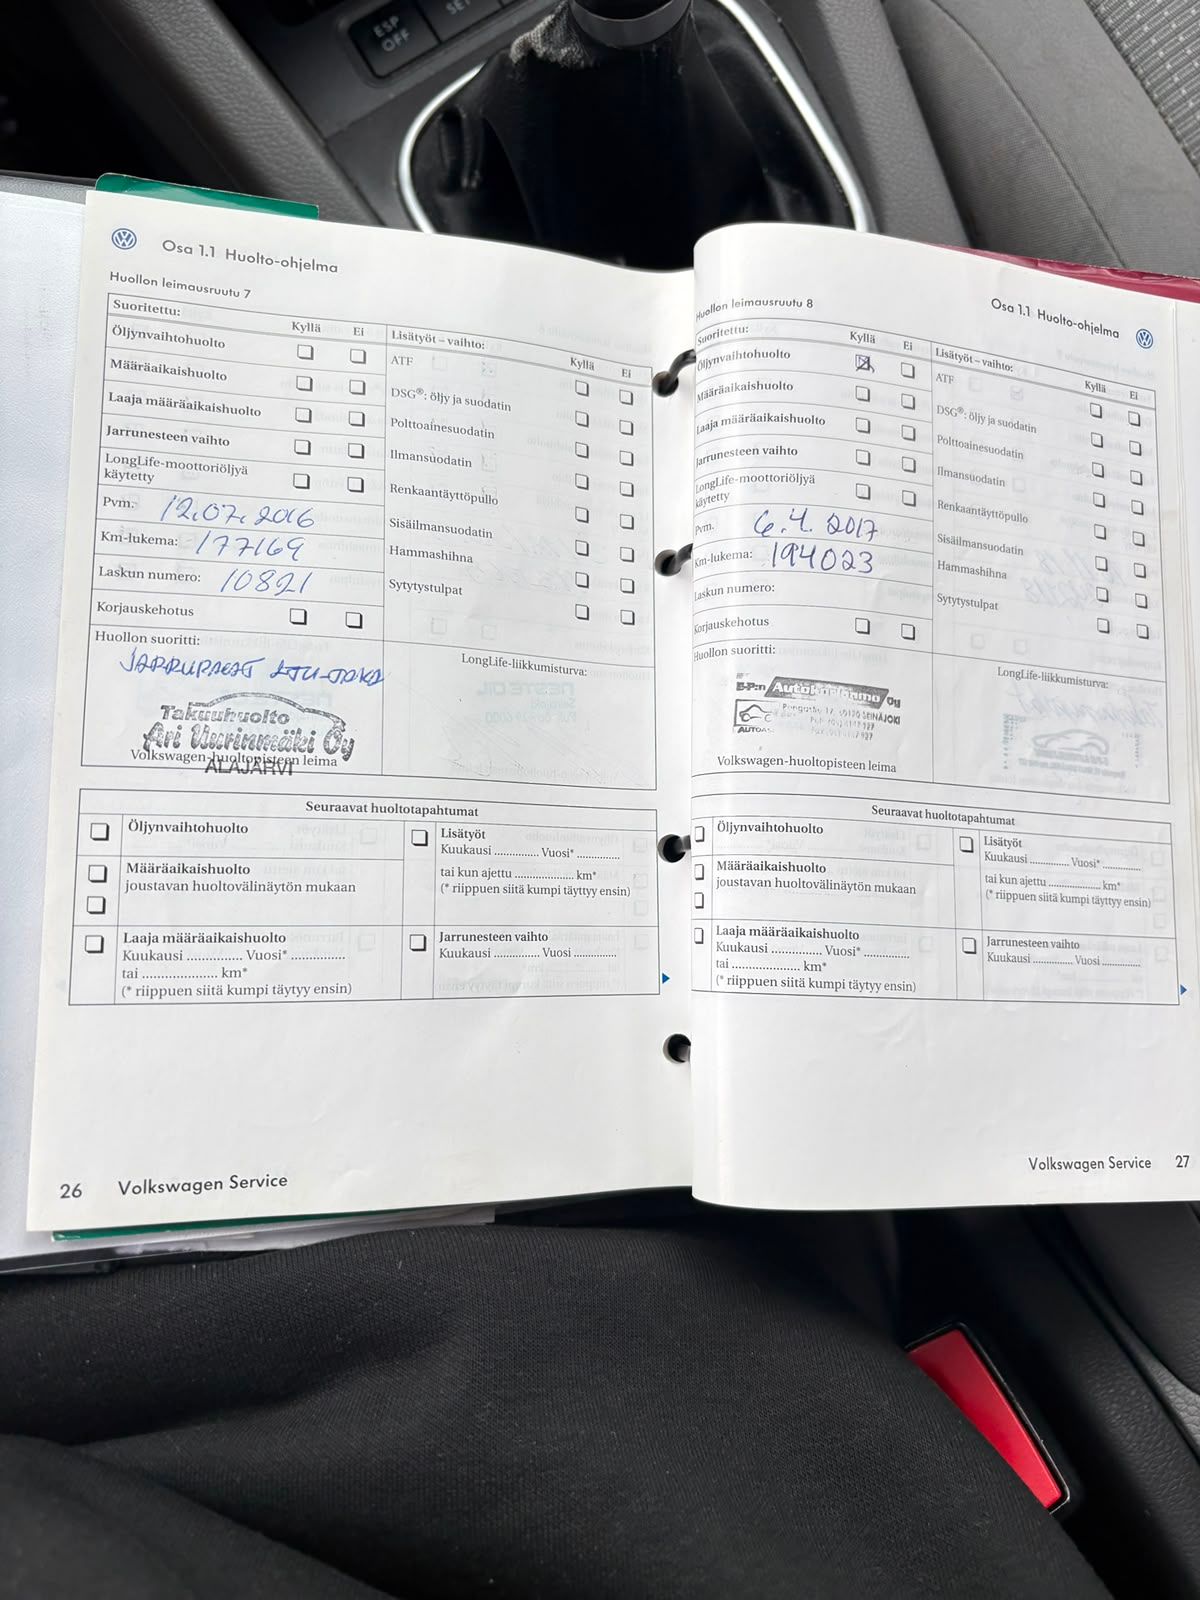 ESP
OFF
SET
Osa 1.1 Huolto-ohjelma
Huollon leimausruutu 7
Suoritettu:
Kyllä Ei
Öljynvaihtohuolto
Määräaikaishuolto
Laaja määräaikaishuolto
Jarrunesteen vaihto
LongLife-moottoriöljyä
käytetty
Pvm. 12.07.2016
Km-lukema: 177169
Laskun numero: 10821
Korjauskehotus
Huollon suoritti:
JARRUPALAT
Takuuhuolto
Ari Uurinmäki Oy
Volkswagen-huoltopisteen leima
ALAJÄRVI
Lisätyöt – vaihto:
Kyllä Ei
ATF
DSG®: öljy ja suodatin
Polttoainesuodatin
Ilmansuodatin
Renkaantäyttöpullo
Sisäilmansuodatin
Hammashihna
Sytytystulpat
LongLife-liikkumisturva:
Seuraavat huoltotapahtumat
Öljynvaihtohuolto
Määräaikaishuolto
joustavan huoltovälinäytön mukaan
Laaja määräaikaishuolto
Kuukausi .............. Vuosi* ..............
tai .................... km*
(* riippuen siitä kumpi täytyy ensin)
Lisätyöt
Kuukausi ............ Vuosi* ............
tai kun ajettu .................... km*
(* riippuen siitä kumpi täyttyy ensin)
Jarrunesteen vaihto
Kuukausi ............ Vuosi ............
26 Volkswagen Service
Osa 1.1 Huolto-ohjelma
Huollon leimausruutu 8
Suoritettu:
Kyllä Ei
Öljynvaihtohuolto
Määräaikaishuolto
Laaja määräaikaishuolto
Jarrunesteen vaihto
LongLife-moottoriöljyä
käytetty
Pvm. 6.4.2017
Km-lukema: 194023
Laskun numero:
Korjauskehotus
Huollon suoritti:
E-P:n Autokorjaamo Oy
SEINÄJOKI
Volkswagen-huoltopisteen leima
Lisätyöt – vaihto:
Kyllä Ei
ATF
DSG®: öljy ja suodatin
Polttoainesuodatin
Ilmansuodatin
Renkaantäyttöpullo
Sisäilmansuodatin
Hammashihna
Sytytystulpat
LongLife-liikkumisturva:
Seuraavat huoltotapahtumat
Öljynvaihtohuolto
Määräaikaishuolto
joustavan huoltovälinäytön mukaan
Laaja määräaikaishuolto
Kuukausi .............. Vuosi* ..............
tai .................... km*
(* riippuen siitä kumpi täytyy ensin)
Lisätyöt
Kuukausi ............ Vuosi* ............
tai kun ajettu .................... km*
(* riippuen siitä kumpi täyttyy ensin)
Jarrunesteen vaihto
Kuukausi ............ Vuosi ............
Volkswagen Service 27